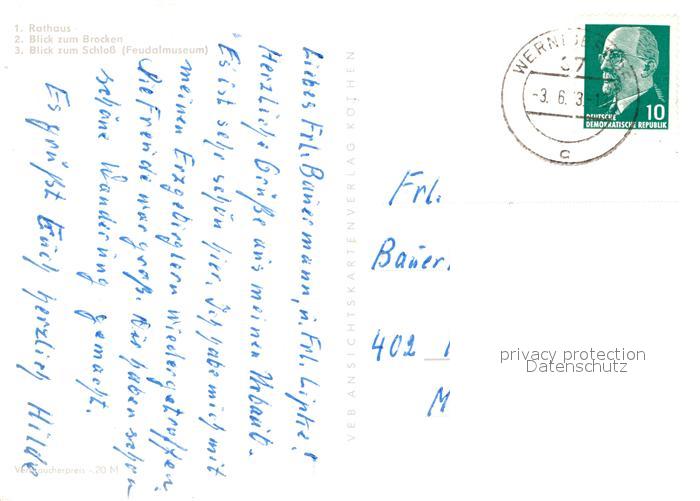 1. Rathaus
2. Blick zum Brocken
3. Blick zum Schloß (Feudalmuseum)
Liebes Frl. Bauermann, u. Frl. Lipke!
Herzliche Grüße aus meinen Urlaub.
Es ist sehr schön hier. Ich habe mich mit
meinen Erzgebirglern wiedergetroffen.
die Freude war groß. Wir haben schon
schöne Wanderung gemacht.
Es grüßt Euch herzlich Hilde
Verbraucherpreis -.20 M
VEB ANSICHTSKARTENVERLAG KÖTHEN
37
-3. 6. 3
c
10
DEUTSCHE
DEMOKRATISCHE REPUBLIK
Frl.
Bauer
402
M
privacy protection
Datenschutz